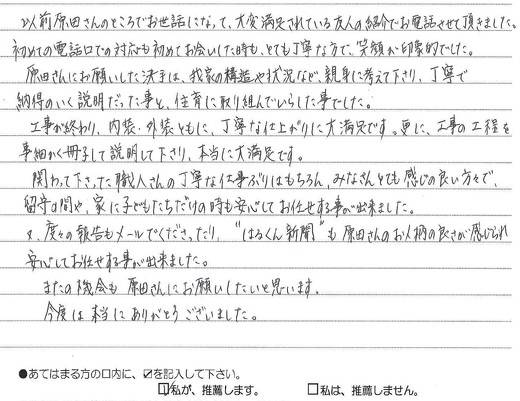 以前原田さんのところでお世話になって、大変満足されている友人の紹介でお電話させて頂きました。
初めての電話口での対応も初めてお会いした時も、とても丁寧な方で、笑顔が印象的でした。
原田さんにお願いした決手は、我家の構造や状況など、親身に考えて下さり、丁寧で
納得のいく説明だった事と、住育に取り組んでいらした事でした。
工事が終わり、内装、外装ともに、丁寧な仕上がりに大満足です。更に、工事の工程を
事細かく冊子して説明して下さり、本当に大満足です。
関わって下さった職人さんの丁寧な仕事ぶりはもちろん、みなさんとても感じの良い方々で、
留守の間や、家に子どもたちだけの時も安心してお任せする事が出来ました。
又、度々の報告もメールでくださったり、"はるくん新聞"も原田さんのお人柄の良さが感じられ
安心してお任せする事が出来ました。
またの機会も原田さんにお願いしたいと思います。
今度は本当にありがとうございました。
●あてはまる方の口内に、☑を記入して下さい。
☑私が、推薦します。 □私は、推薦しません。